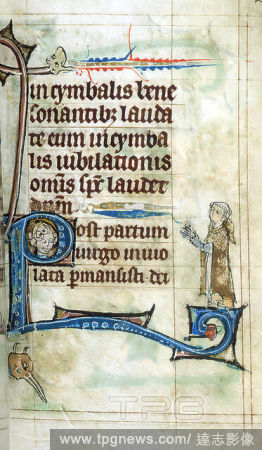 in cymbalis bene
sonantibꝫ lauda
te eum in cymba
lis iubilationis
om̅is sp̅c laudet
Post partum
uirgo inuio
lata p̅mansisti dei
TPG
www.tpgnews.com/ 達志影像